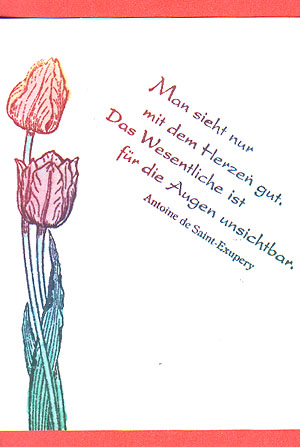 Man sieht nur
mit dem Herzen gut.
Das Wesentliche ist
für die Augen unsichtbar.
Antoine de Saint-Exupery